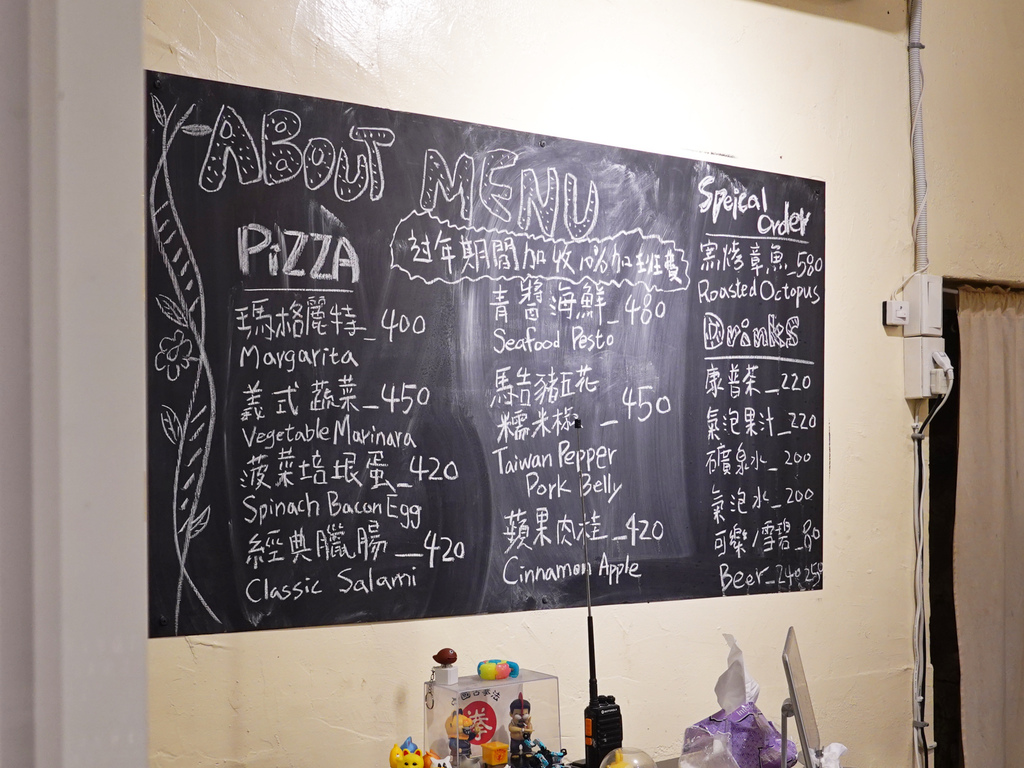 ABOUT MENU
PIZZA
过年期間加收10%加班費
瑪格麗特_400
Margarita
義式蔬菜_450
Vegetable Marinara
菠菜培根蛋_420
Spinach Bacon Egg
經典臘腸_420
Classic Salami
青醬海鮮_480
Seafood Pesto
馬告豬五花
糯米椒_450
Taiwan Pepper
Pork Belly
蘋果肉桂_420
Cinnamon Apple
Speical
Order
窯烤章魚_580
Roasted Octopus
Drinks
康普茶_220
氣泡果汁_220
礦泉水_200
氣泡水_200
可樂/雪碧_80
Beer_240.250
拳